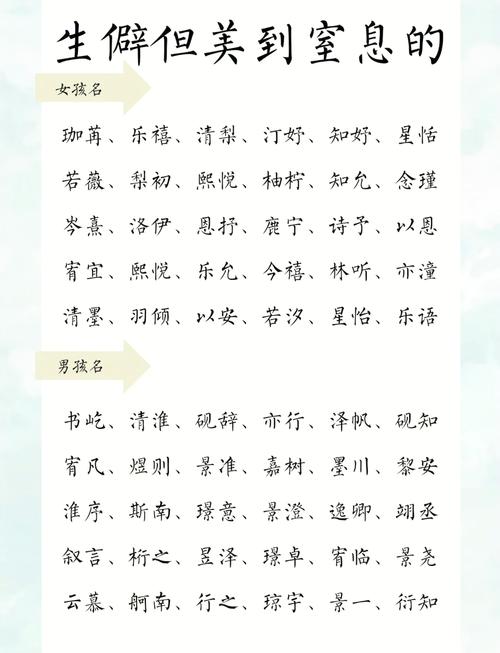 生僻但美到窒息的
女孩名
珈苒、乐禧、清梨、汀妤、知妤、星恬
若薇、梨初、熙悦、柚柠、知允、念瑾
岑熹、洛伊、恩抒、鹿宁、诗予、以恩
宥宜、熙悦、乐允、今禧、林听、亦潼
清墨、羽倾、以安、若汐、星怡、乐语
男孩名
书屹、清淮、砚辞、亦行、泽帆、砚知
宥凡、煜则、景准、嘉树、墨川、黎安
淮序、斯南、璟意、景澄、逸卿、翊丞
叙言、桁之、昱泽、璟卓、宥临、景尧
云慕、舸南、行之、琼宇、景一、衍知